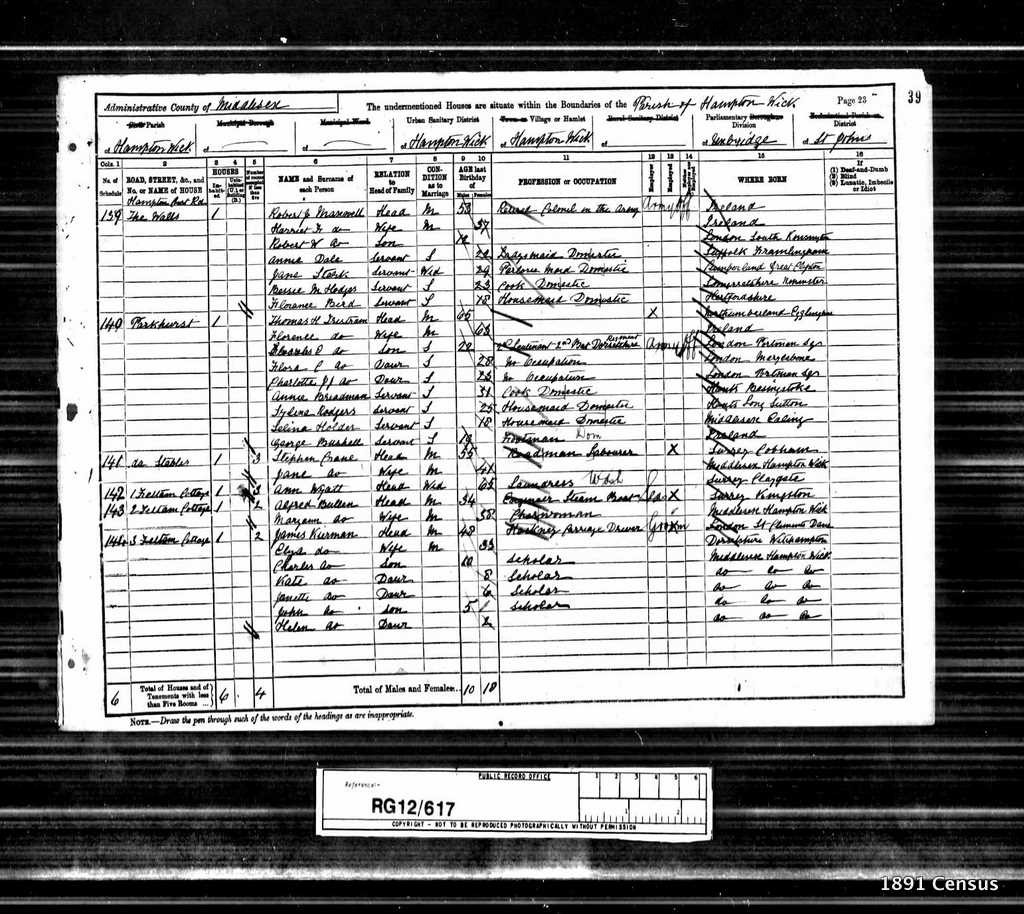 Administrative County of Middlesex
The undermentioned Houses are situate within the Boundaries of the Parish of Hampton Wick
Page 23
39
Civil Parish
Municipal Borough
Municipal Ward
Urban Sanitary District
Town or Village or Hamlet
Rural Sanitary District
Parliamentary Borough or Division
Ecclesiastical Parish or District
of Hampton Wick
of
of
of Hampton Wick
of Hampton Wick
of
of Uxbridge
of St Johns
Cols. 1 2 3 4 5 6 7 8 9 10 11 12 13 14 15 16
No. of Schedule
ROAD, STREET, &c., and No. or NAME of HOUSE
HOUSES
NAME and Surname of each Person
RELATION to Head of Family
CONDITION as to Marriage
AGE last Birthday of
Males Females
PROFESSION or OCCUPATION
Employer
Employed
WHERE BORN
If (1) Deaf-and-Dumb (2) Blind (3) Lunatic, Imbecile or Idiot
139 The Walls 1 Robert J Maxwell Head M 53 Retired Colonel in the Army Army Off Ireland
Harriet do Wife M 37 Ireland
Robert W do Son 12 London South Kensington
Annie Dale Servant S 22 Domestic Suffolk Framlingham
Jane Stark Servant Wid 29 Maid Domestic Cumberland Great Clifton
Bessie M Hodges Servant S 23 Cook Domestic Somersetshire
Florence Bird Servant S 18 Housemaid Domestic Hertfordshire
140 Parkhurst 1 Thomas H Tristram Head M 65 X Northumberland Eglingham
Florence do Wife M 63 Ireland
do Son S 22 Lieutenant 2nd Bat Dorsetshire Regiment Army Off London Portman Sqr
Flora C do Daur S 28 No Occupation London Marylebone
Charlotte do Daur S 23 No Occupation London Portman Sqr
Annie Breadman Servant S 31 Cook Domestic Hants Basingstoke
Rodgers Servant S 25 Housemaid Domestic Hants Long Sutton
Selina Holder Servant S 18 Housemaid Domestic Middlesex Ealing
George Bushell Servant S 19 Footman Dom Ireland
141 do Stables 1 3 Stephen Crane Head M 55 Labourer X Surrey Cobham
Jane do Wife M 41 Middlesex Hampton Wick
142 1 Feltam Cottage 1 3 Ann Wyatt Head Wid 65 Laundress Surrey Claygate
143 2 Feltam Cottage 1 2 Alfred Bullen Head M 54 Engineer Steam Boat X Surrey Kingston
Maryam do Wife M 58 Charwoman Middlesex Hampton Wick
144 3 Feltam Cottage 1 2 James Kierman Head M 48 Hackney Carriage Driver Groom London St Clements Dane
do Wife M 33
Charles do Son 10 Scholar Middlesex Hampton Wick
Kate do Daur 8 Scholar do do do
Janette do Daur 6 Scholar do do do
John do Son 5 Scholar do do do
Helen do Daur 2 do do do
6 Total of Houses and of Tenements with less than Five Rooms 6 4 Total of Males and Females... 10 18
NOTE.—Draw the pen through such of the words of the headings as are inappropriate.
PUBLIC RECORD OFFICE
1 2 3 4 5 6
Reference:-
RG12/617
1 2
COPYRIGHT - NOT TO BE REPRODUCED PHOTOGRAPHICALLY WITHOUT PERMISSION
1891 Census